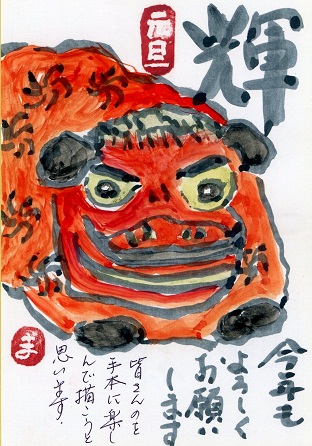 元旦
輝
今年も
よろしく
お願い
します
皆さんのを
手本に楽し
んで描こうと
思います.
ま